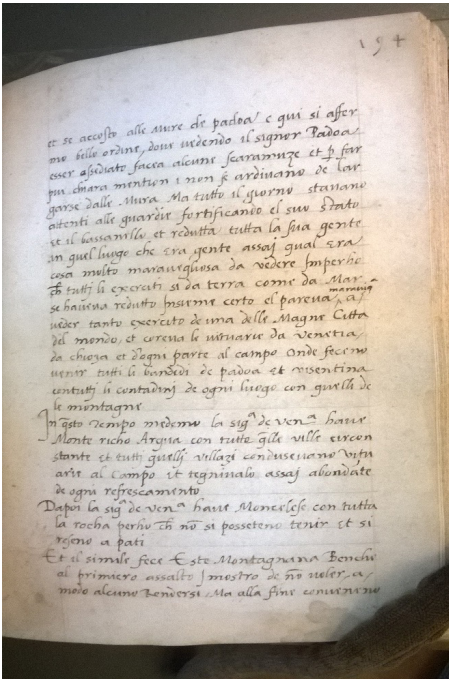 194
et se accosto alle mure de padoa e qui si affer
mo bello ordine, dove vedendo il signor Padoa
esser assediato facea alcune scaramuze et p far
piu chiara mention i non se ardivano de lar
garse dalle Mura Ma tutto il giorno stavano
attenti alle guardie fortificando el suo stato
et il bassanello et redutta tutta la sua gente
in quel luogo che era gente assaj qual era
cosa molto maravegliosa da vedere Imperho
ch tutti li exerciti si da terra come da Mar
se haveva redutto Insieme certo el pareva maravig.a a
veder tanto exercito de una delle Magne Citta
del mondo, et coreva le vetuarie da Venetia
da chioza et d'ogni parte al campo onde feceno
venir tutti li bandedi de padoa et visentina
con tutti li contadinj de ogni luogo con quelli de
le montagne
In qsto Tempo medemo la sig.a de ven.a have
Monte richo Arqua con tutte qlle ville circon
stante et tutti quellj villazi condusevano vitu
arie al Campo et tegnivalo assaj abondate
de ogni refrescamento
Dapoi la sig.a de ven.a have Moncelese con tutta
la rocha perho ch nō si posseteno tenir et si
reseno a pati
Et il simile fece Este Montagnana Benche
al primiero assalto J mostro de nō voler, a,
modo alcuno Rendersi, Ma alla fine conveneno